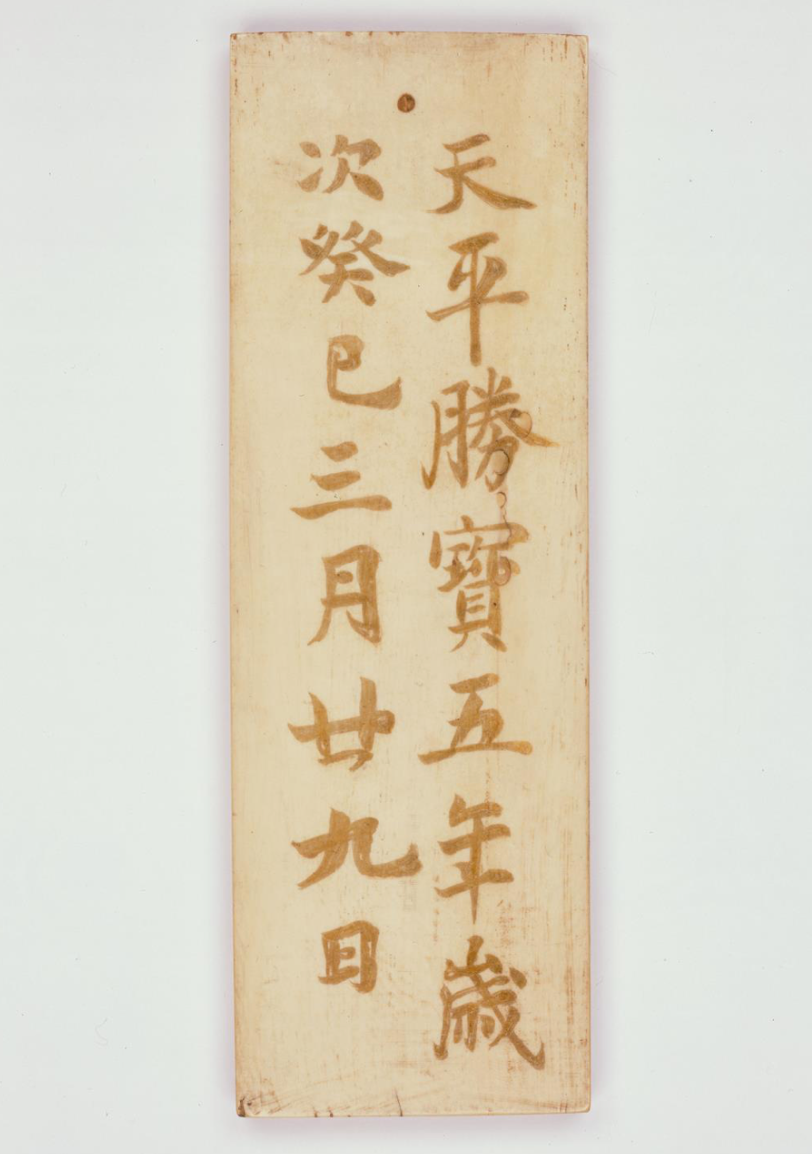 天平勝寶五年歳
次癸巳三月廿九日